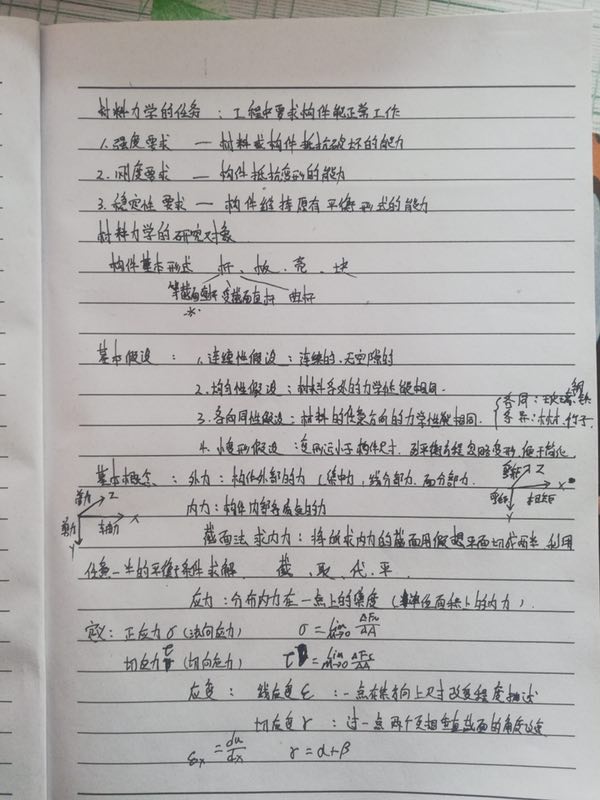 材料力学的任务：工程中要求构件能正常工作
1.强度要求 — 材料或构件抵抗破坏的能力
2.刚度要求 — 构件抵抗变形的能力
3.稳定性要求 — 构件维持原有平衡形式的能力
材料力学的研究对象
构件基本形式 杆、板、壳、块
等截面直杆 变截面直杆 曲杆
*
基本假设：1.连续性假设：连续的、无空隙的
2.均匀性假设：材料各处的力学性能相同.
3.各向同性假设：材料的任意方向的力学性能相同.
各同：玻璃 钢 铁
各异：木材.竹子
4.小变形假设：变形远小于构件尺寸.列平衡方程忽略变形,便于简化
基本概念：外力：构件外部的力（集中力，线分部力.面分部力.
内力：构件内部各质点的力
剪力 Z
剪力 Y 轴力 X
弯矩 Z
弯矩 Y 扭矩 X
截面法求内力：将所求内力的截面用假想平面切成两半，利用
任意一半的平衡条件求解. 截、取、代、平
应力：分布内力在一点上的集度（单位面积上的内力）.
定义：正应力σ(法向应力) σ=lim ΔFN/ΔA
切应力τ(切向应力) τ=lim ΔFs/ΔA
应变：线应变ε：一点在某方向上尺寸改变程度描述
切应变γ：过一点两个互相垂直截面的角度改变
εx=du/dx γ=α+β